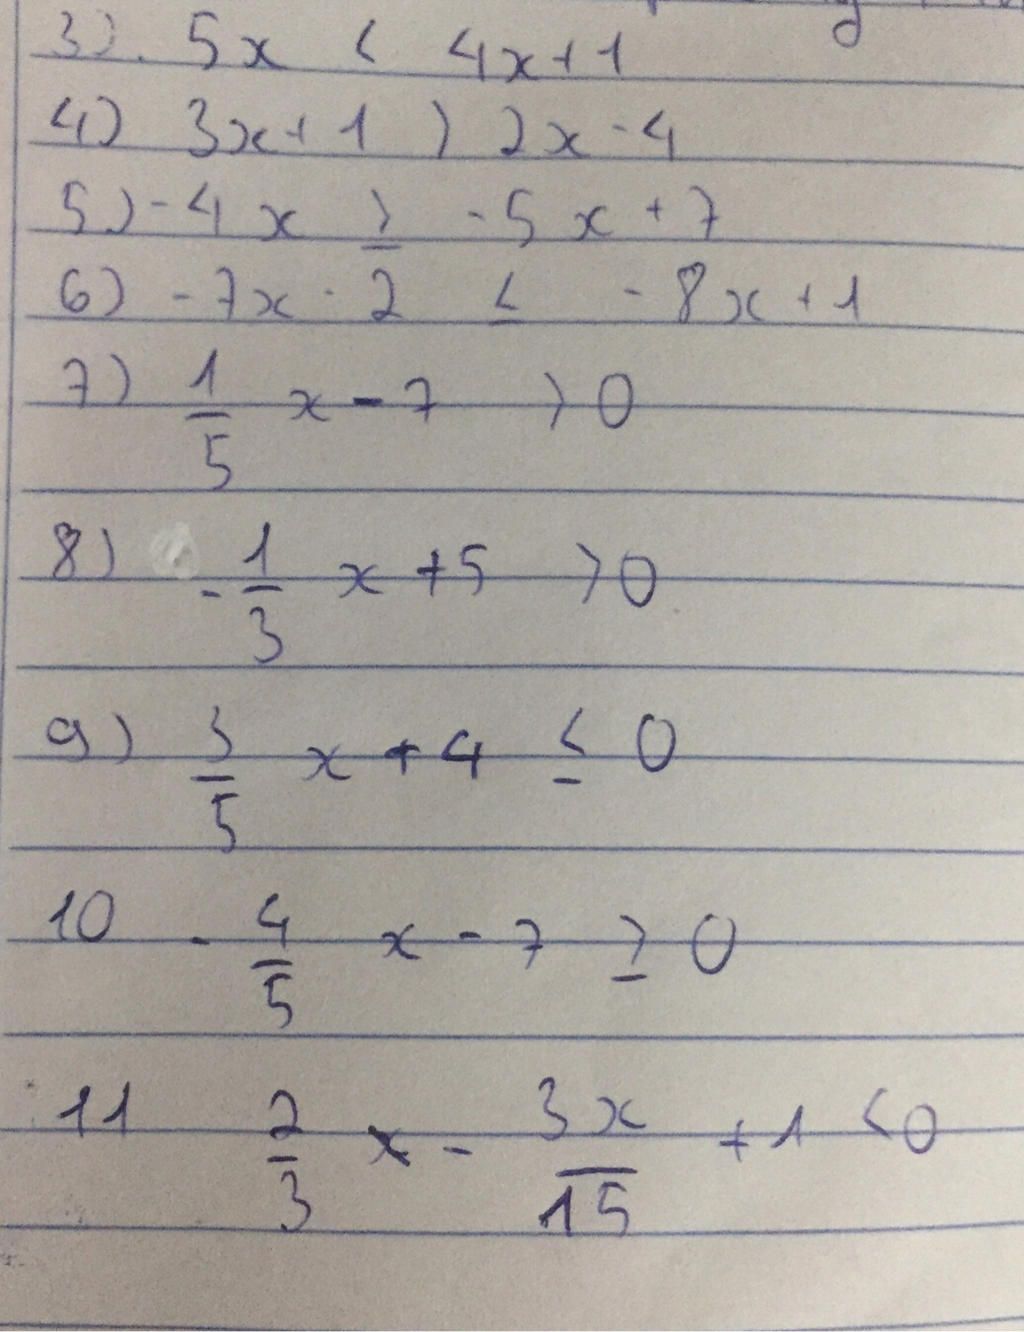 3). 5x < 4x+1
4) 3x+1 > 2x-4
5) -4x ≥ -5x+7
6) -7x-2 ≤ -8x+1
7) 1/5 x-7 >0
8) -1/3 x+5 >0
9) 3/5 x+4 ≤ 0
10 -4/5 x-7 ≥ 0
11 2/3 x - 3x/15 +1 <0